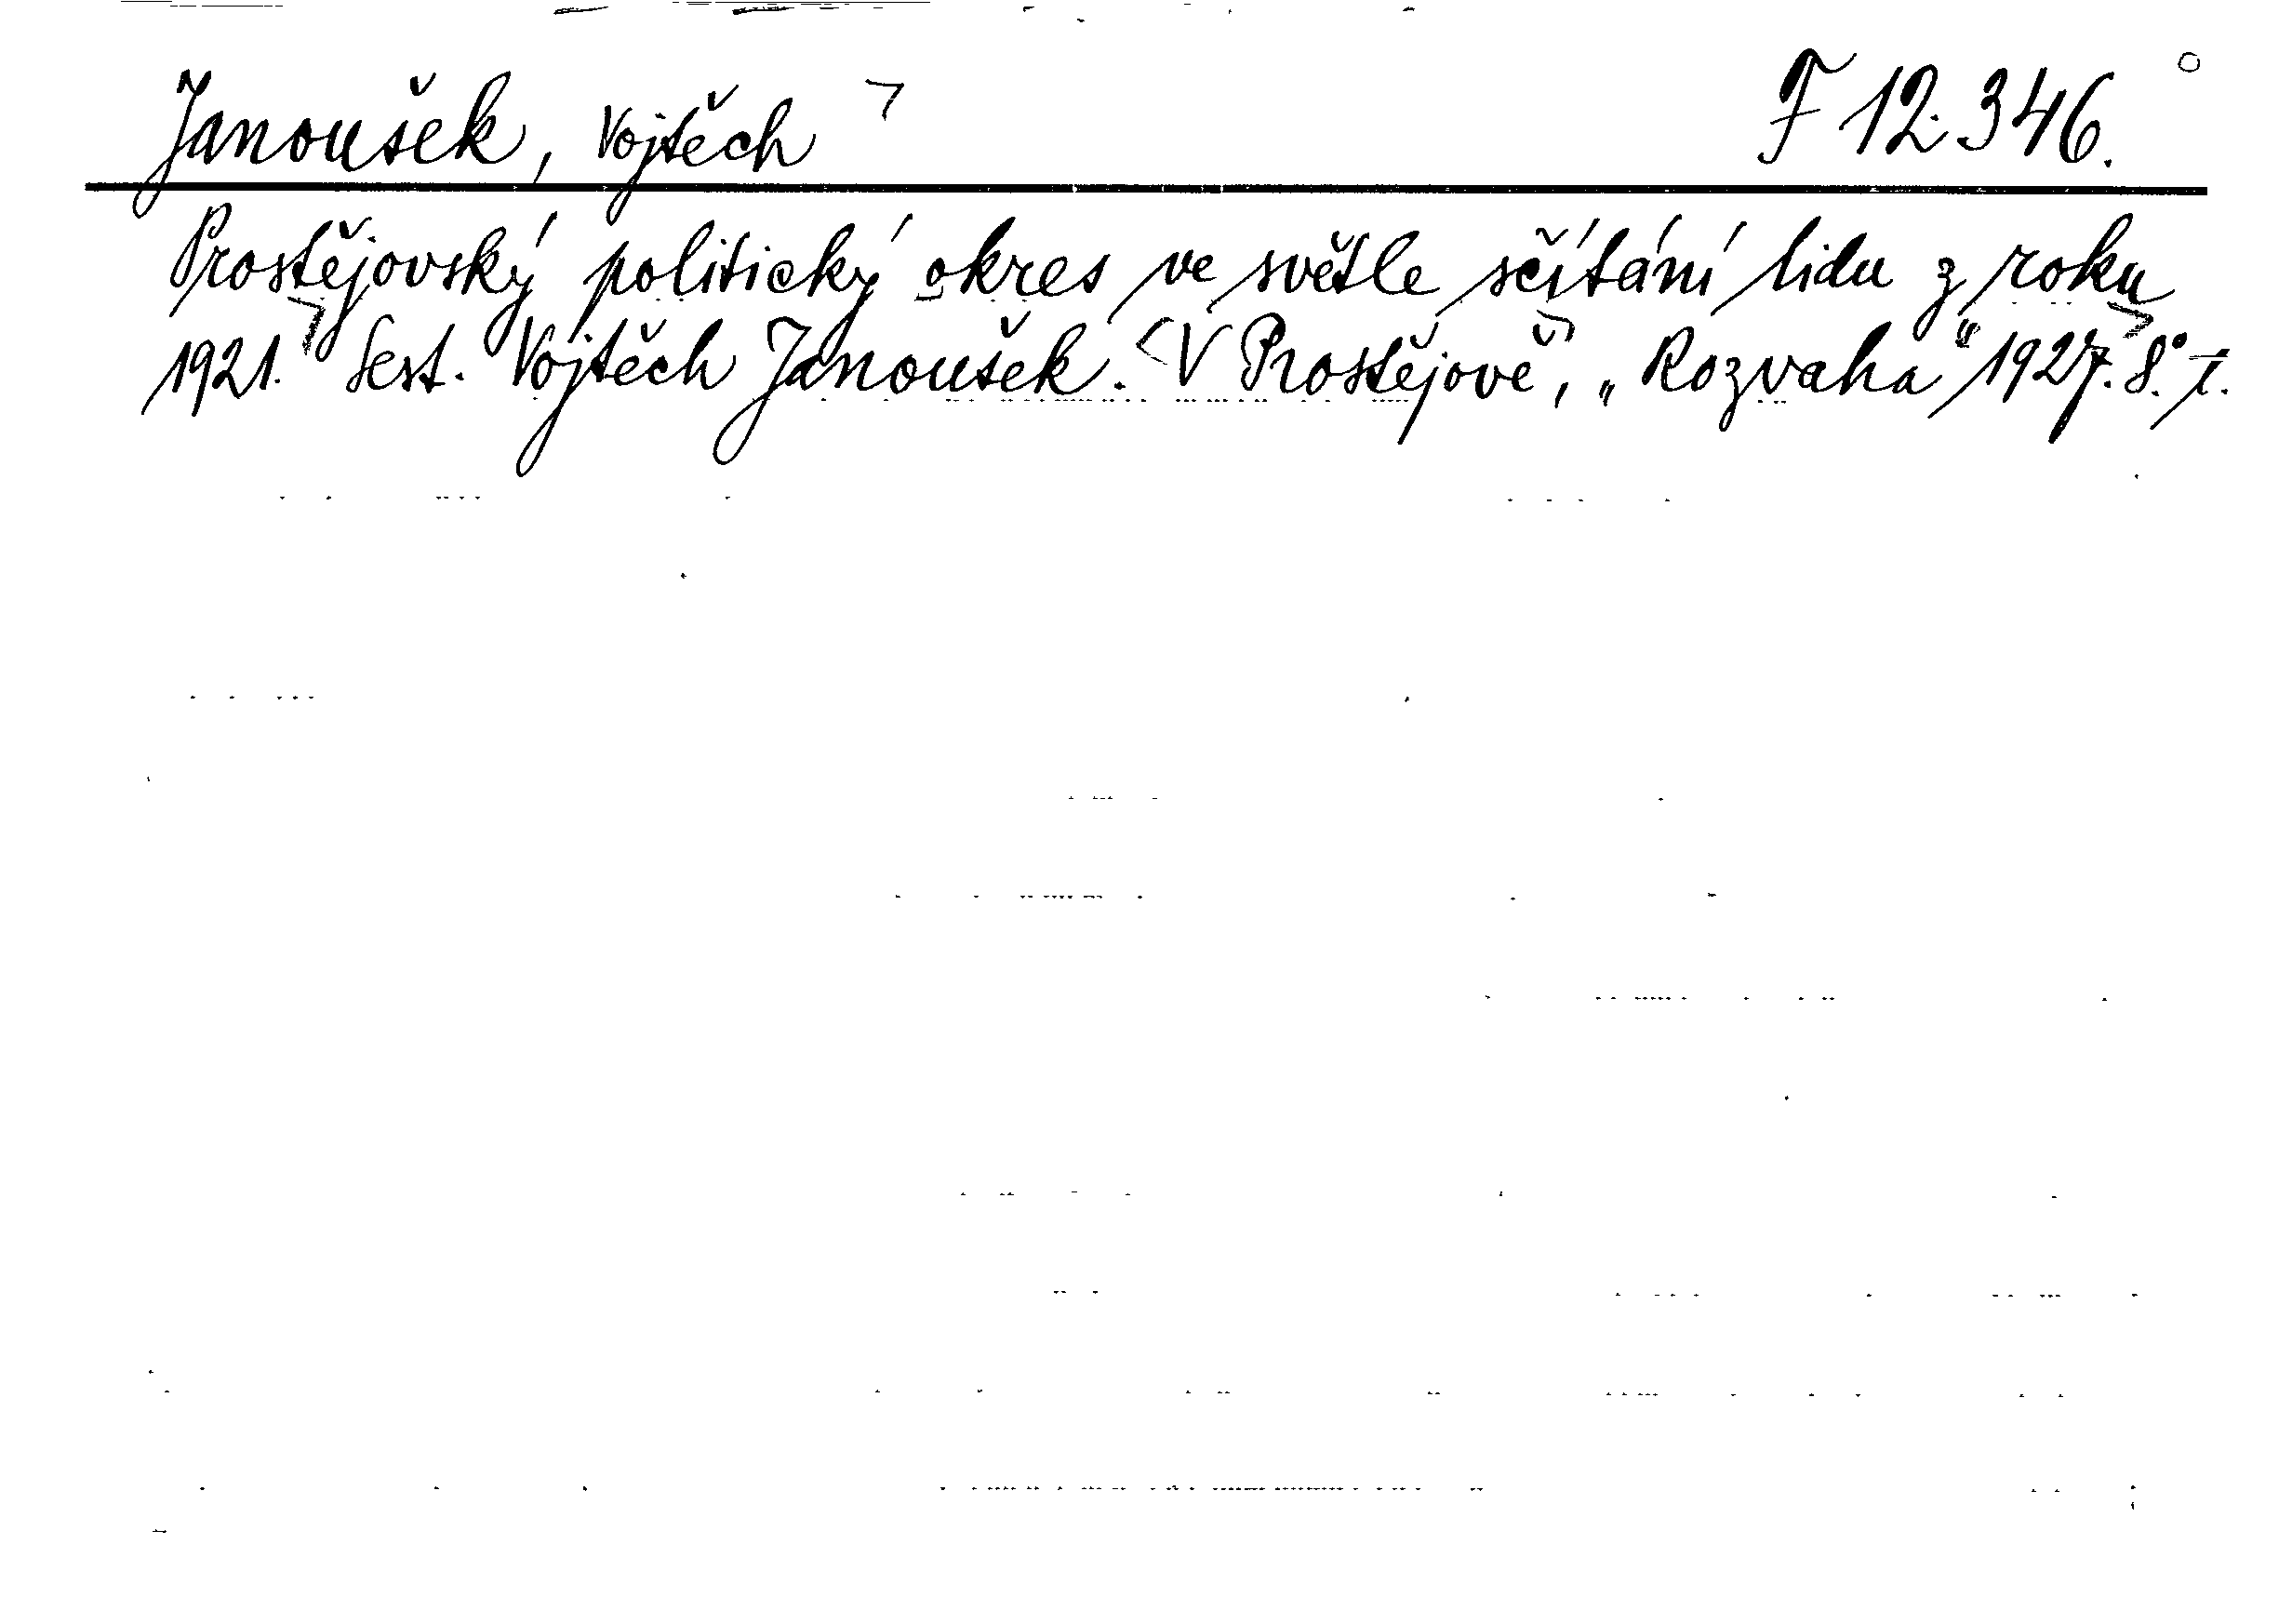 Janoušek, Vojtěch F 12.346.
Prostějovský politický okres ve světle sčítání lidu z roku
1921. Sest. Vojtěch Janoušek. V Prostějově, „Rozvaha“ 1927. 8.°